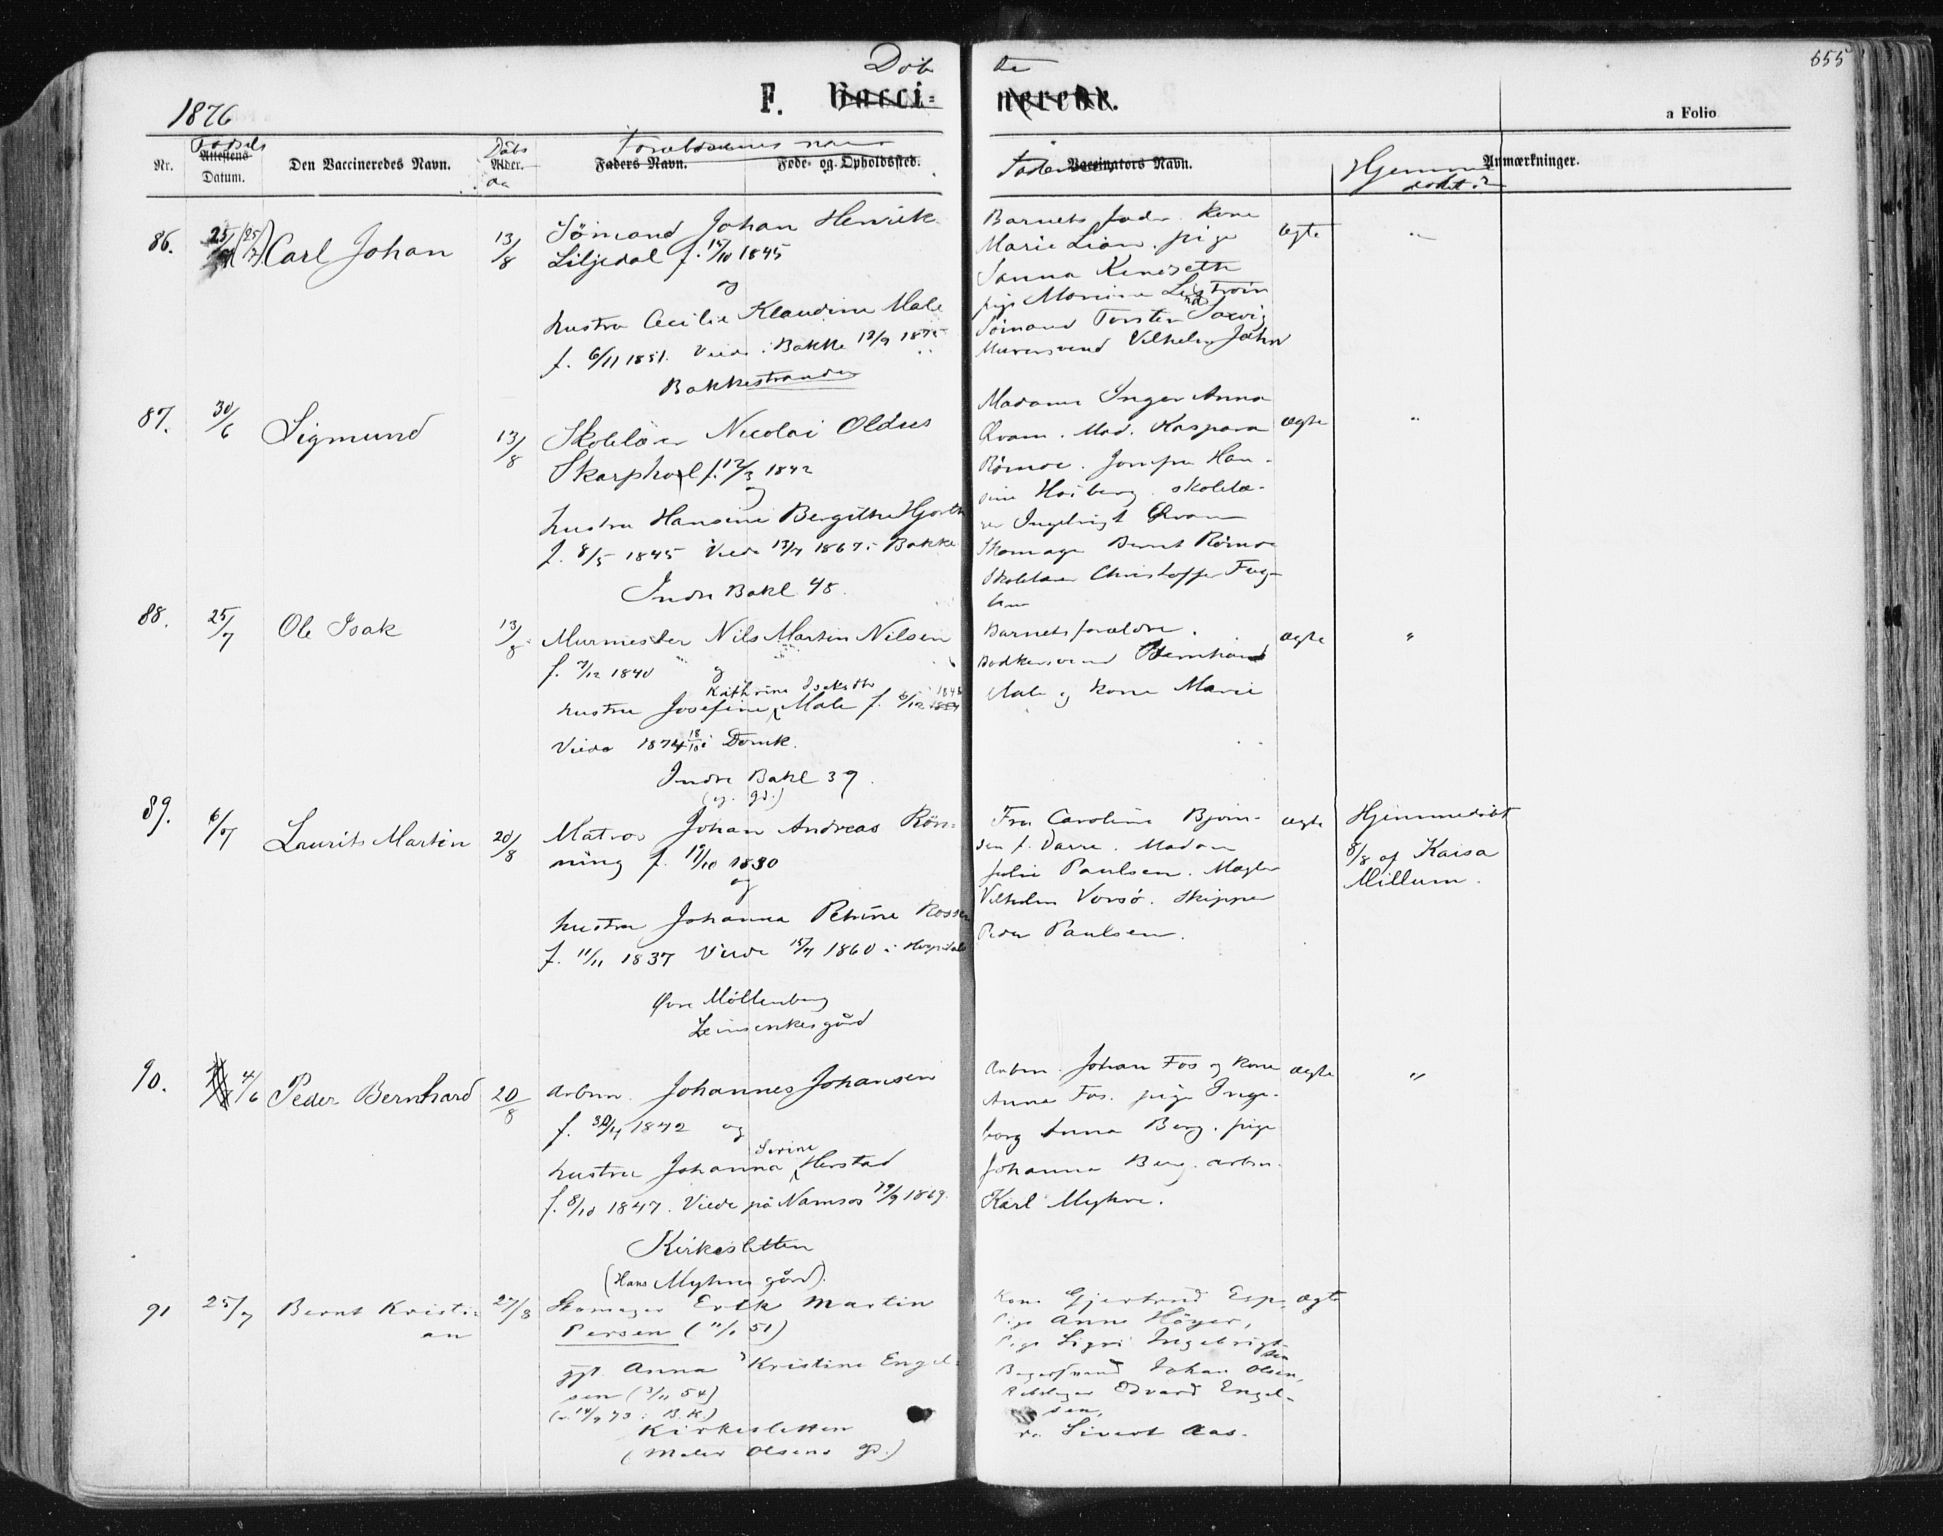 Døb te
655
1876
F. Vacci= nerede.
a Folio
Fødsels Døbs Forældrenes navn
Nr. Attestens Datum. Den Vaccineredes Navn. Alder. Faders Navn. Føde- og Opholdssted. Vaccinators Navn. Anmærkninger.
Faddere Hjemme døbt?
86. 25/7 Carl Johan 13/8
Sømand Johan Henrik
Liljedal f. 15/10 1845
og
hustru Cecilie Klaudine Male
f. 6/11 1851. Viede i Bakke
Bakkestranden
Barnets fader. kone
Marie Lian. pige
Sanna
pige
Sømand Torsten Saxvig
Murersvend Vilhelm Jahn
ægte "
87. 30/6 Sigmund 13/8
Skolelærer Nicolai Oldus
Skarphol f. 12/3 1842
og
hustru Hansine Bergithe Hjorth
f. 8/5 1845 Viede 13/7 1867 i Bakke
Indre Bakl 48.
Madame Inger Anna
Qvam. Mad. Kaspara
Rømoe. Jomfru Han-
sine Hoiberg. skolelæ-
rer Ingebrigt Qvam
Skomager Bernt Rømoe
Skolelærer Christoffer Fug-
lem
ægte "
88. 25/7 Ole Isak 13/8
Murmester Nils Martin Nilsen
f. 7/12 1840
og
Kathrine Isaksdtr
hustru Josefine Male f. 6/12
Viede 1874 18/10 i Domk.
Indre Bakl 39.
(eg. gd.)
Barnets forældre.
Bødkersvend Bernhard
Male og kone Marie
ægte "
89. 6/7 Laurits Martin 20/8
Matros Johan Andreas Røn-
ning f. 19/10 1830
og
hustru Johanna Petrine Rossen
f. 11/11 1837 Viede 15/7 1860 i Hospitals
Øvre Møllenberg
Fru Caroline Bjørn-
sen f. Darre. Madam
Julie Paulsen. Mægler
Vilhelm Vorsø. Skipper
Peder Paulsen.
ægte
Hjemmedøbt
8/8 af Kaisa
Millum.
90. 4/6 Peder Bernhard 20/8
Arbm. Johannes Johansen
f. 30/4 1842 og
Serine
hustru Johanna Herstad
f. 8/10 1847. Viede på Namsos 19/9 1869.
Kirkesletten
(Hans Myhres gård).
Arbm. Johan Fos og kone
Anne Fos. pige Inge-
borg Anna Berg. pige
Johanna Berg. arbm.
Karl Myhre.
ægte "
91 25/7 Bernt Kristi-
an
27/8
Skomager Erik Martin
Persen
gpt. Anna Kristine Engel-
sen (3/11 54)
(v. 14/9 73 i B.K.)
Kirkesletten
(Maler Olsens gd.)
Kone Gjertrud Esp, ægte
Pige Anne Høyer,
Pige Sigri Ingebrigt-
sen
Bagersvend Johan Olsen,
Rebslager Edvard Engel-
sen,
do. Sivert Aas.